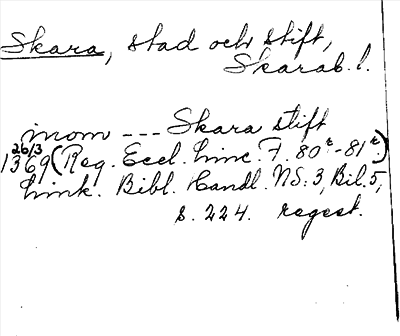 Skara, stad och stift,
Skarab. l.
inom --- Skara stift
26/3
1369 (Reg. Eccl. Linc. F. 80r - 81r.)
Link. Bibl. Handl. NS: 3, Bil. 5,
s. 224. regest.